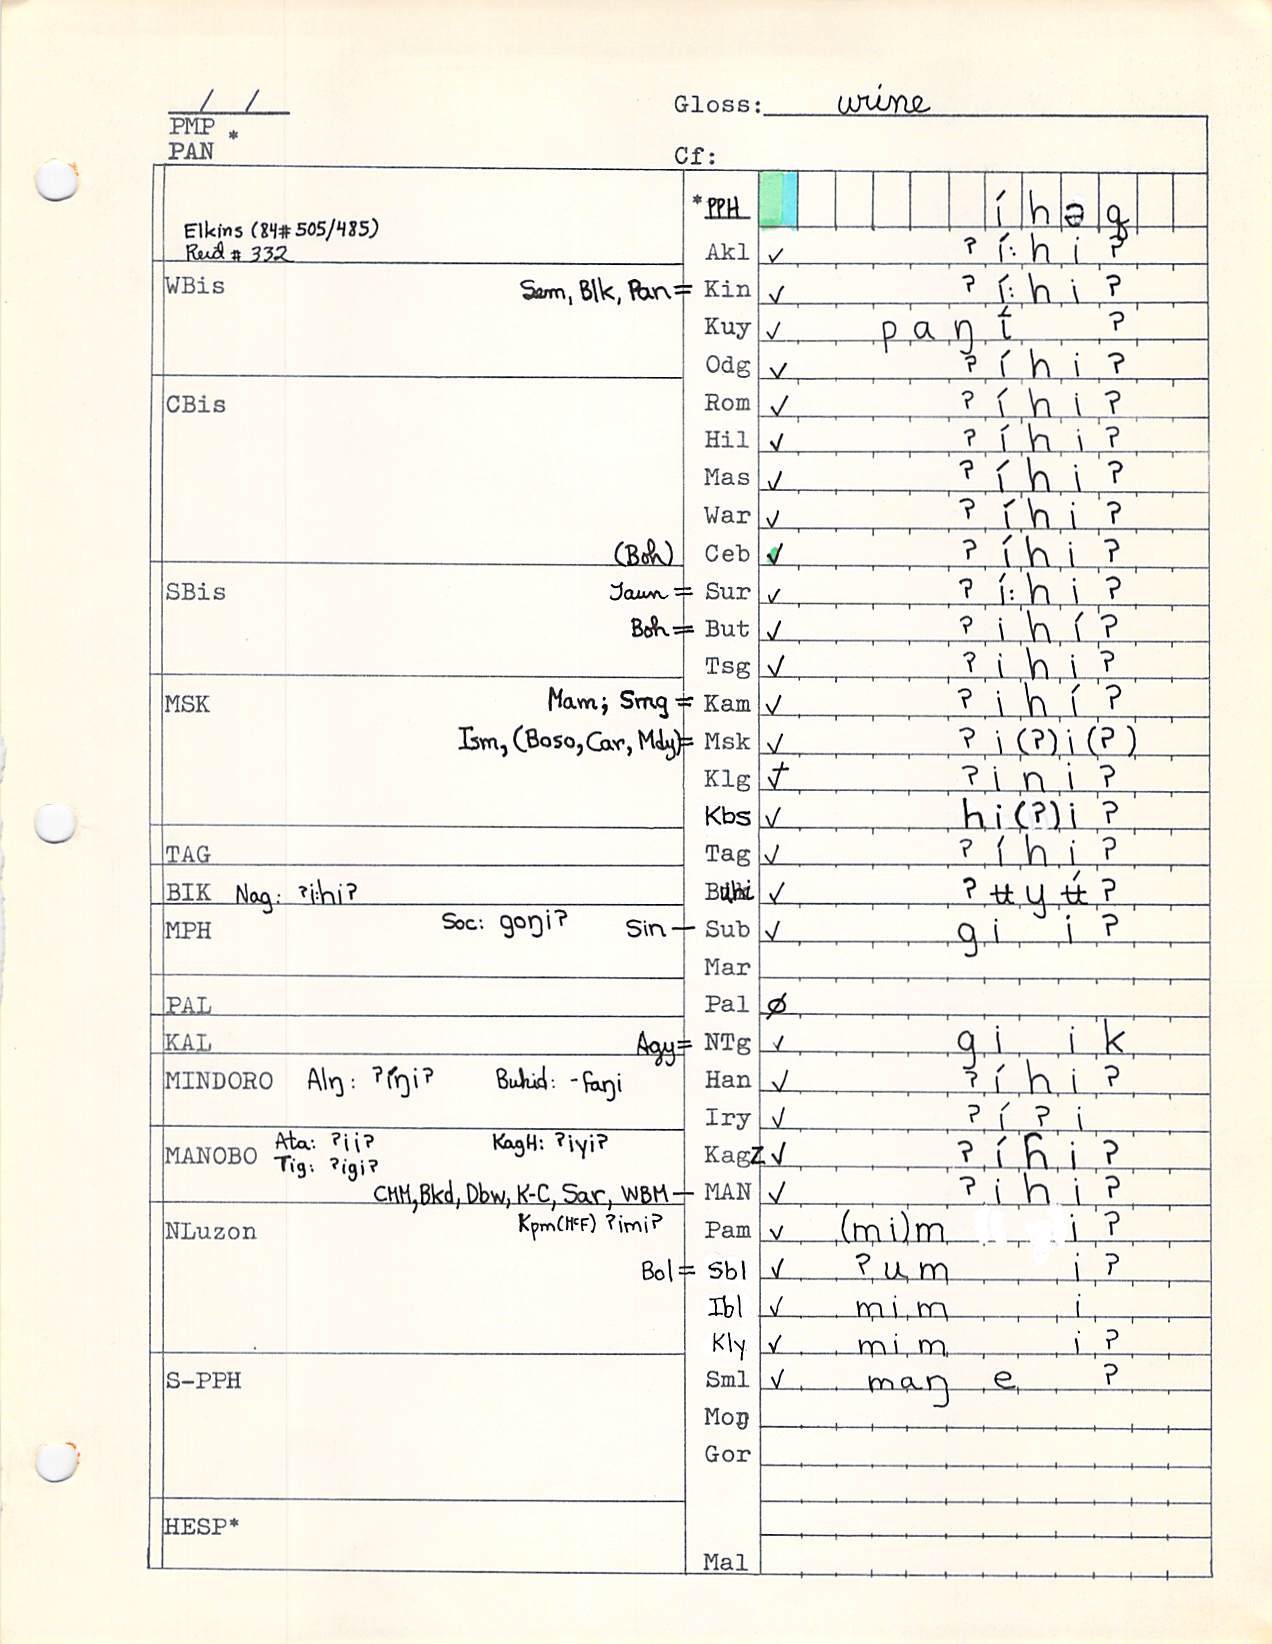 / /
Gloss: urine
PMP *
PAN
Cf:
*PPH íhəq
Elkins (84# 505/485)
Reid # 332
Akl ✓ ʔí:hiʔ
WBis Sem, Blk, Pan = Kin ✓ ʔí:hiʔ
Kuy ✓ paŋíʔ
Odg ✓ ʔíhiʔ
CBis Rom ✓ ʔíhiʔ
Hil ✓ ʔíhiʔ
Mas ✓ ʔíhiʔ
War ✓ ʔíhiʔ
(Boh) Ceb ✓ ʔíhiʔ
SBis Jaun = Sur ✓ ʔí:hiʔ
Boh = But ✓ ʔihíʔ
Tsg ✓ ʔihiʔ
MSK Mam; Smg = Kam ✓ ʔihíʔ
Ism, (Boso, Car, Mdy) = Msk ✓ ʔi(ʔ)i(ʔ)
Klg † ʔiniʔ
Kbs ✓ hi(ʔ)iʔ
TAG Tag ✓ ʔíhiʔ
BIK Nag: ʔi:hiʔ Buhi ✓ ʔʉyʉ́ʔ
MPH Soc: goŋiʔ Sin — Sub ✓ giiʔ
Mar
PAL Pal ∅
KAL Agy = NTg ✓ giik
MINDORO Alŋ: ʔíŋiʔ Buhid: -faŋi Han ✓ ʔíhiʔ
Iry ✓ ʔíʔi
MANOBO Ata: ʔiiʔ KagH: ʔiyiʔ KagZ ✓ ʔíh̃iʔ
Tig: ʔigiʔ
CMM, Bkd, Dbw, K-C, Sar, WBM — MAN ✓ ʔihiʔ
NLuzon Kpm(McF) ʔimiʔ Pam ✓ (mi)miʔ
Bol = Sbl ✓ ʔumiʔ
Ibl ✓ mimi
Kly ✓ mimiʔ
S-PPH Sml ✓ maŋeʔ
Moŋ
Gor
HESP*
Mal